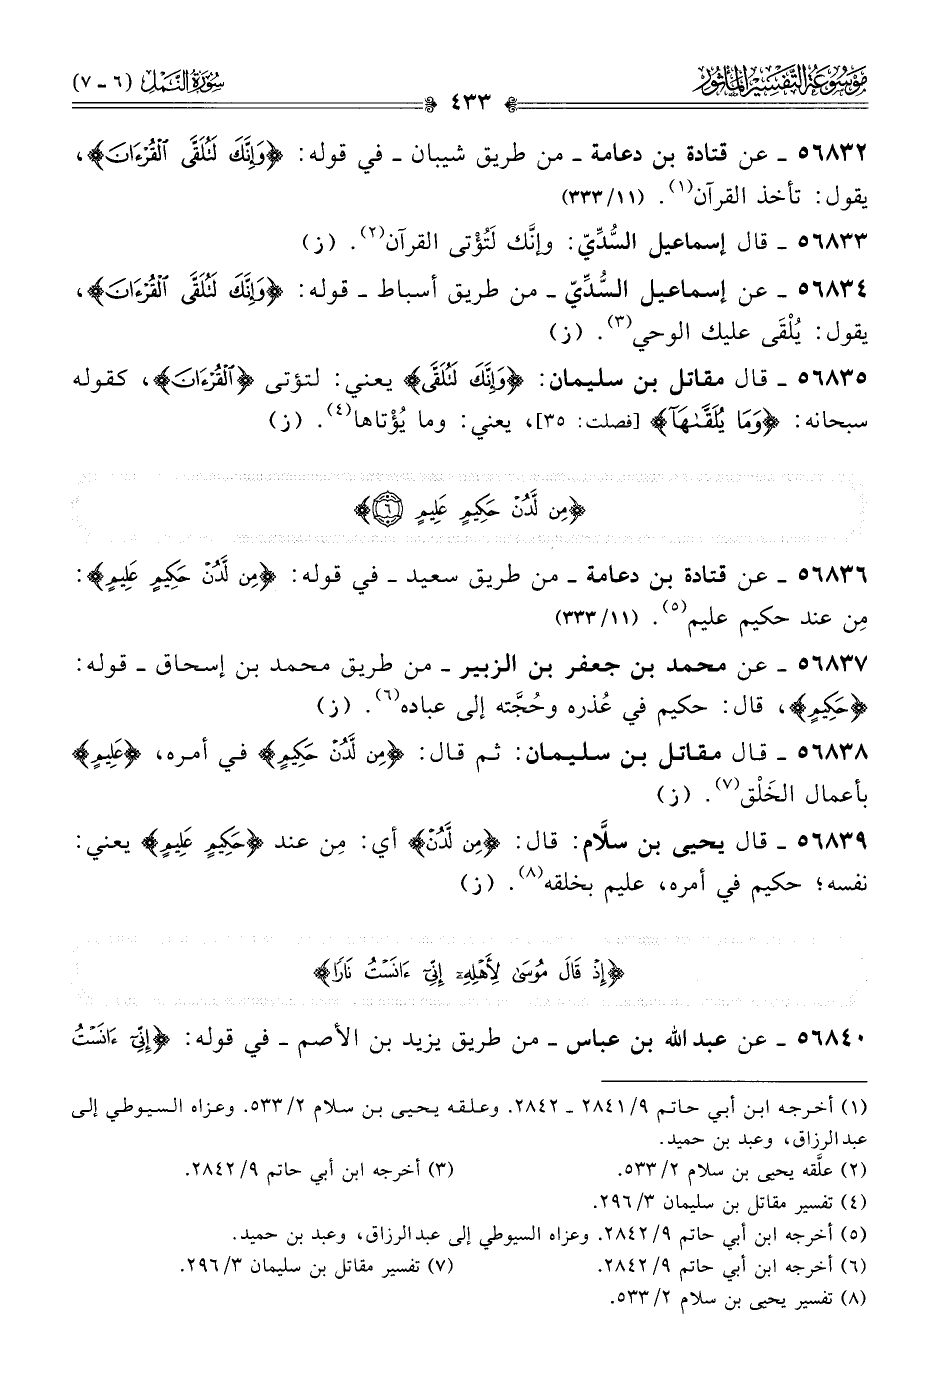 موسوعة التفسير المأثور
٤٣٣
سورة النمل (٦ - ٧)
٥٦٨٣٢ ـ عن قتادة بن دعامة ـ من طريق شيبان ـ في قوله: ﴿وَإِنَّكَ لَتُلَقَّى ٱلْقُرْءَانَ﴾،
يقول: تأخذ القرآن(١). (١١/ ٣٣٣)
٥٦٨٣٣ ـ قال إسماعيل السُّدِّيّ: وإنَّك لَتُؤْتى القرآن(٢). (ز)
٥٦٨٣٤ ـ عن إسماعيل السُّدِّيّ ـ من طريق أسباط ـ قوله: ﴿وَإِنَّكَ لَتُلَقَّى ٱلْقُرْءَانَ﴾،
يقول: يُلْقَى عليك الوحي(٣). (ز)
٥٦٨٣٥ ـ قال مقاتل بن سليمان: ﴿وَإِنَّكَ لَتُلَقَّى﴾ يعني: لتؤتى ﴿ٱلْقُرْءَانَ﴾، كقوله
سبحانه: ﴿وَمَا يُلَقَّىٰهَآ﴾ [فصلت: ٣٥]، يعني: وما يُؤْتاها(٤). (ز)
﴿مِن لَّدُنْ حَكِيمٍ عَلِيمٍ ٦﴾
٥٦٨٣٦ ـ عن قتادة بن دعامة ـ من طريق سعيد ـ في قوله: ﴿مِن لَّدُنْ حَكِيمٍ عَلِيمٍ﴾:
مِن عند حكيم عليم(٥). (١١/ ٣٣٣)
٥٦٨٣٧ ـ عن محمد بن جعفر بن الزبير ـ من طريق محمد بن إسحاق ـ قوله:
﴿حَكِيمٍ﴾، قال: حكيم في عُذره وحُجَّته إلى عباده(٦). (ز)
٥٦٨٣٨ ـ قال مقاتل بن سليمان: ثم قال: ﴿مِن لَّدُنْ حَكِيمٍ﴾ في أمره، ﴿عَلِيمٍ﴾
بأعمال الخَلْق(٧). (ز)
٥٦٨٣٩ ـ قال يحيى بن سلَّام: قال: ﴿مِن لَّدُنْ﴾ أي: مِن عند ﴿حَكِيمٍ عَلِيمٍ﴾ يعني:
نفسه؛ حكيم في أمره، عليم بخلقه(٨). (ز)
﴿إِذْ قَالَ مُوسَىٰ لِأَهْلِهِۦٓ إِنِّىٓ ءَانَسْتُ نَارًا﴾
٥٦٨٤٠ ـ عن عبد الله بن عباس ـ من طريق يزيد بن الأصم ـ في قوله: ﴿إِنِّىٓ ءَانَسْتُ
(١) أخرجه ابن أبي حاتم ٩/ ٢٨٤١ ـ ٢٨٤٢. وعلقه يحيى بن سلام ٢/ ٥٣٣. وعزاه السيوطي إلى
عبد الرزاق، وعبد بن حميد.
(٢) علَّقه يحيى بن سلام ٢/ ٥٣٣. (٣) أخرجه ابن أبي حاتم ٩/ ٢٨٤٢.
(٤) تفسير مقاتل بن سليمان ٣/ ٢٩٦.
(٥) أخرجه ابن أبي حاتم ٩/ ٢٨٤٢. وعزاه السيوطي إلى عبد الرزاق، وعبد بن حميد.
(٦) أخرجه ابن أبي حاتم ٩/ ٢٨٤٢. (٧) تفسير مقاتل بن سليمان ٣/ ٢٩٦.
(٨) تفسير يحيى بن سلام ٢/ ٥٣٣.